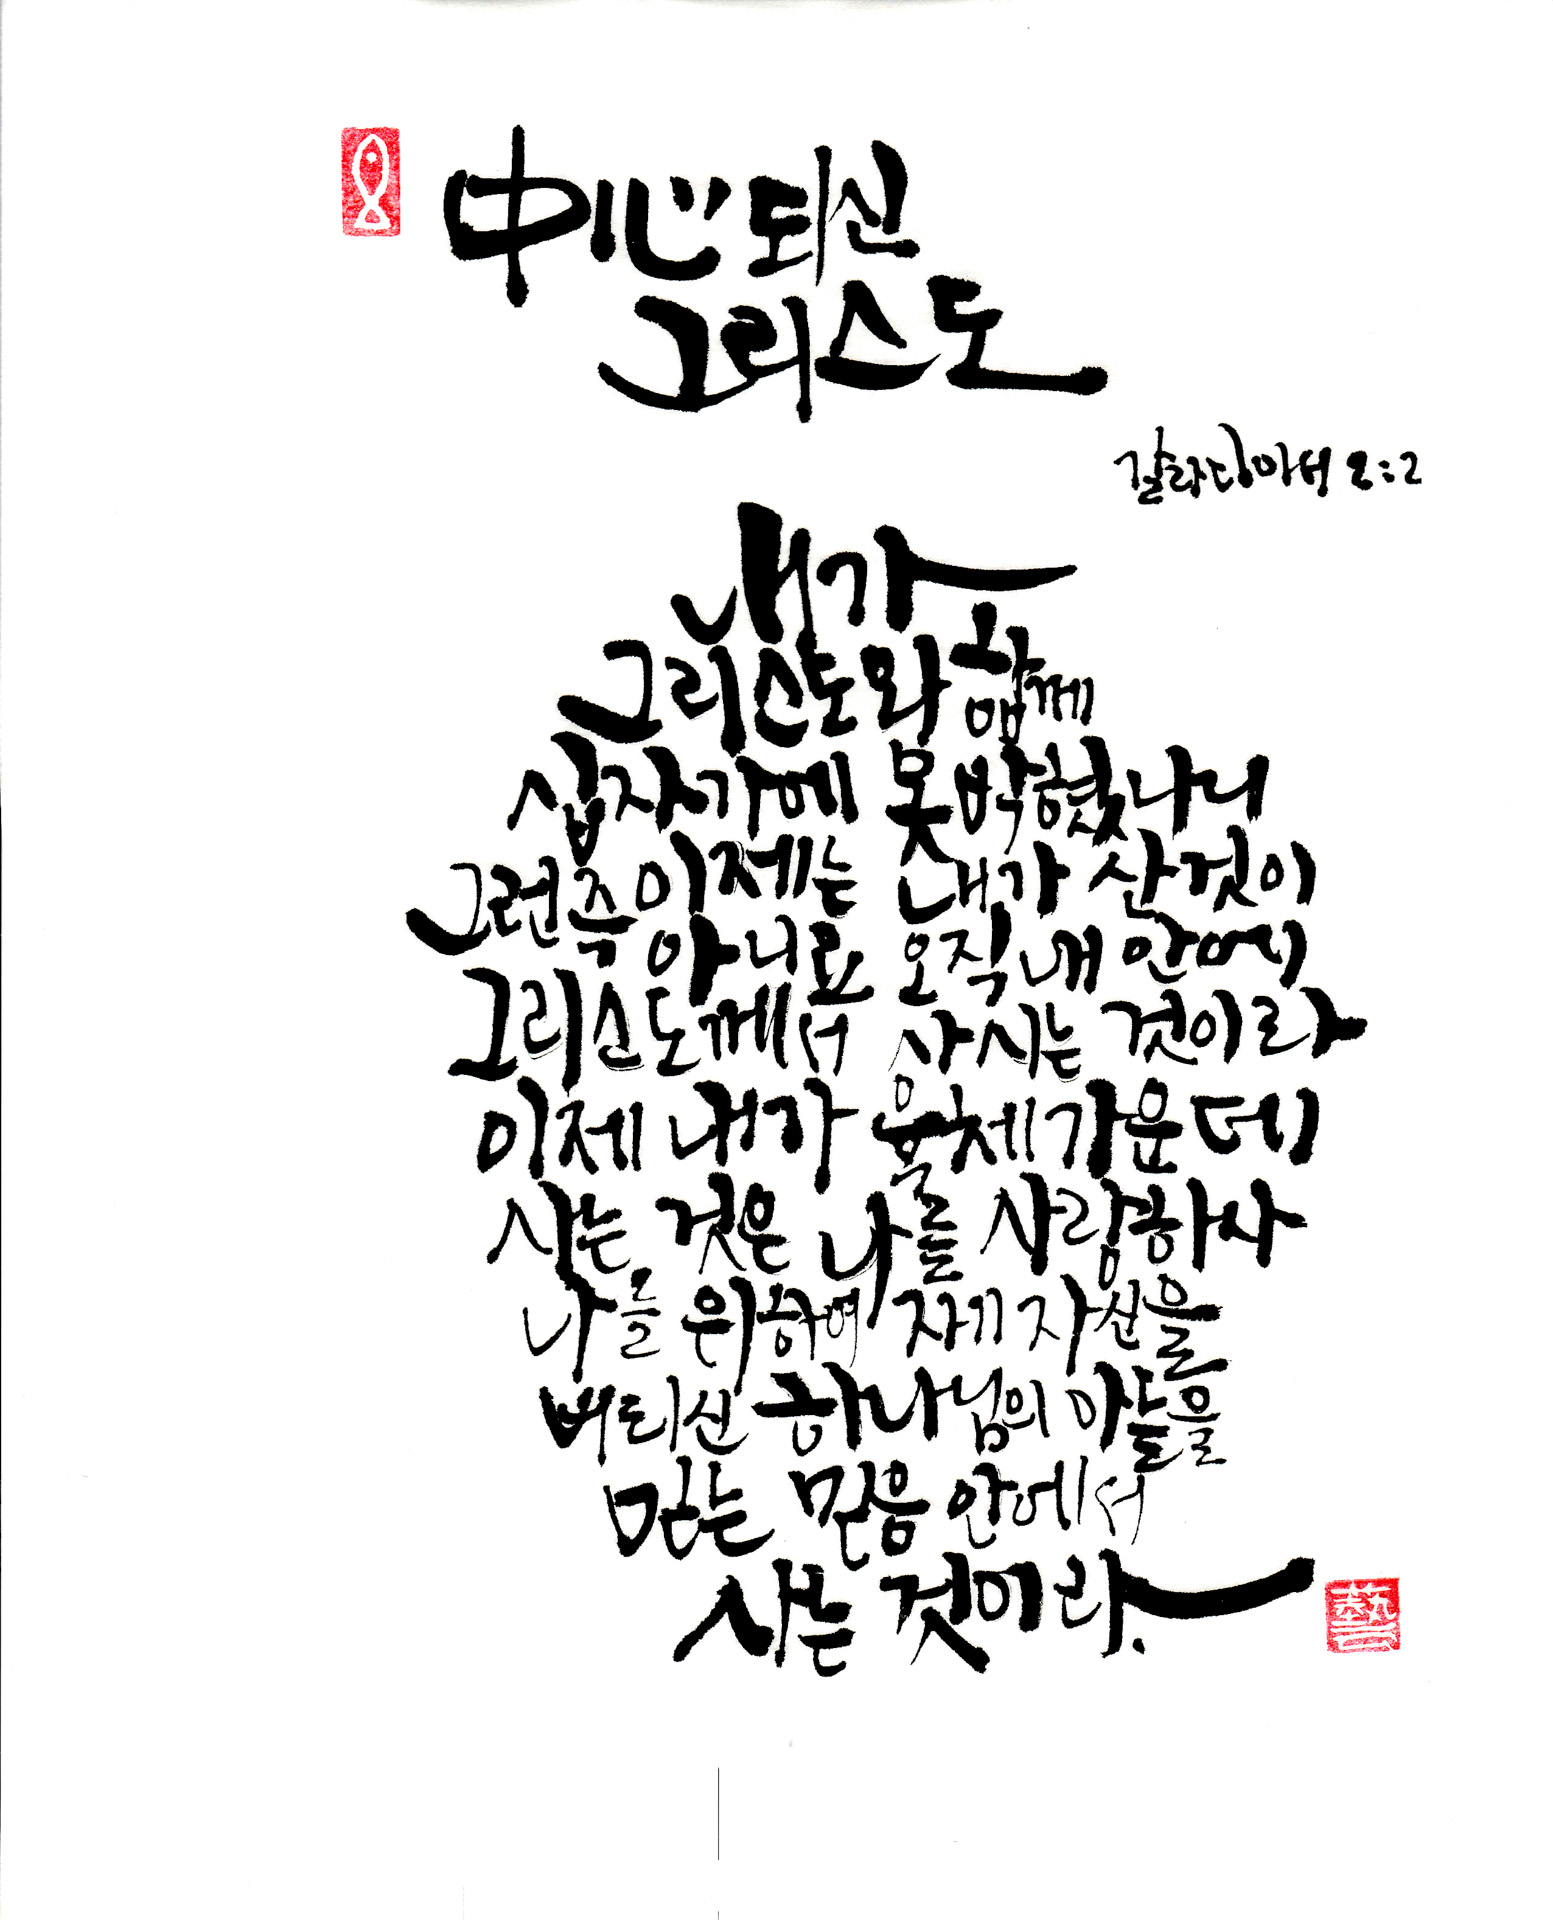 中心되신
그리스도
갈라디아서 2:2
내가
그리스도와 함께
십자가에 못박혔나니
그런즉 이제는 내가 산것이
아니요 오직 내 안에
그리스도께서 사시는 것이라
이제 내가 육체 가운데
사는 것은 나를 사랑하사
나를 위하여 자기 자신을
버리신 하나님의 아들을
믿는 믿음 안에서
사는 것이라.
藝